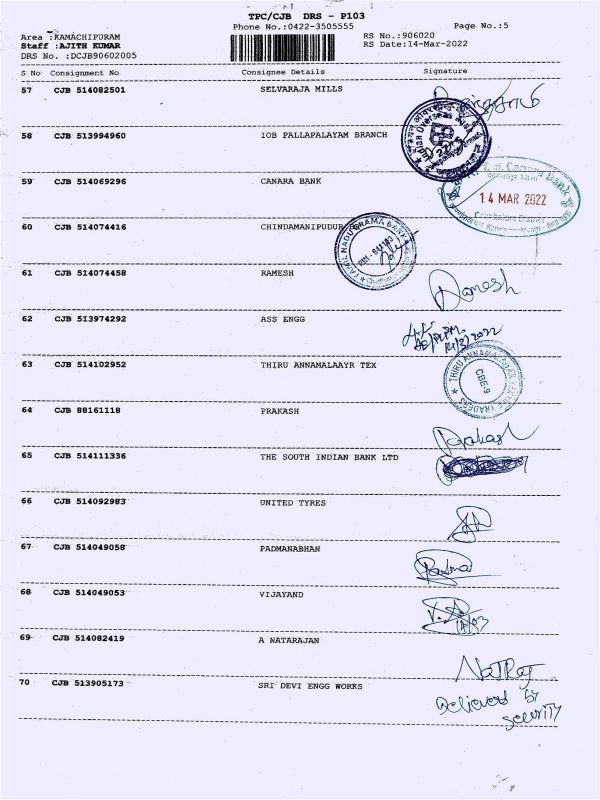 TPC/CJB DRS - P103
Phone No.:0422-3505555
Page No.:5
Area :KAMACHIPURAM
Staff :AJITH KUMAR
DRS No. :DCJB90602005
RS No.:906020
RS Date:14-Mar-2022
S No Consignment No Consignee Details Signature
57 CJB 514082501 SELVARAJA MILLS
58 CJB 513994960 IOB PALLAPALAYAM BRANCH
Indian Overseas Bank
59 CJB 514069296 CANARA BANK
Canara Bank
14 MAR 2022
Coimbatore District
60 CJB 514074416 CHINDAMANIPUDUR
TAMIL NADU GRAMA BANK
61 CJB 514074458 RAMESH
Ramesh
62 CJB 513974292 ASS ENGG
14/3/2022
63 CJB 514102952 THIRU ANNAMALAAYR TEX
CBE-9
64 CJB 88161118 PRAKASH
Prakash
65 CJB 514111336 THE SOUTH INDIAN BANK LTD
66 CJB 514092983 UNITED TYRES
67 CJB 514049058 PADMANABHAN
Padma
68 CJB 514049053 VIJAYAND
69 CJB 514082419 A NATARAJAN
NATRAJ
70 CJB 513905173 SRI DEVI ENGG WORKS
Delievered by
security